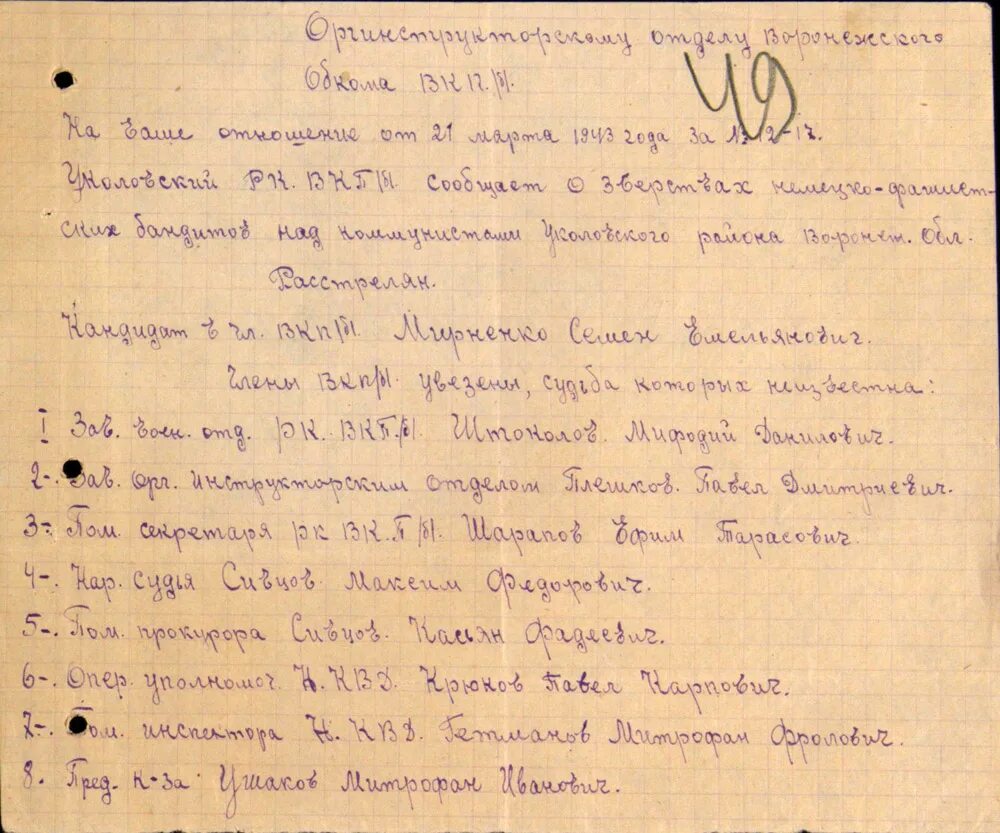 Оргинструкторскому отделу Воронежского
Обкома ВКП/б/.
49
На ваше отношение от 21 марта 1943 года за № 12-17.
Уколовский РК. ВКП/б/. сообщает о зверствах немецко-фашист-
ских бандитов над коммунистами Уколовского района Воронеж. Обл.
Расстрелян.
Кандидат в чл. ВКП/б/. Семен Емельянович.
Члены ВКП/б/. увезены, судьба которых неизвестна:
I Зав. воен. отд. РК. ВКП./б/. Штоколов. Мифодий Данилович.
2-. Зав. Орг. инструкторским отделом Плешков. Павел Дмитриевич.
3-. Пом. секретаря РК ВК.П/б/. Шарапов Ефим Тарасович.
4-. Нар. судья Сивцов Максим Федорович.
5-. Пом. прокурора Сивцов. Касьян Фадеевич.
6-. Опер. уполномоч. Н.КВД. Крюков Павел Карпович.
7-. Пом. инспектора Н.КВД. Гетманов Митрофан Фролович.
8. Пред. к-за Ушаков Митрофан Иванович.